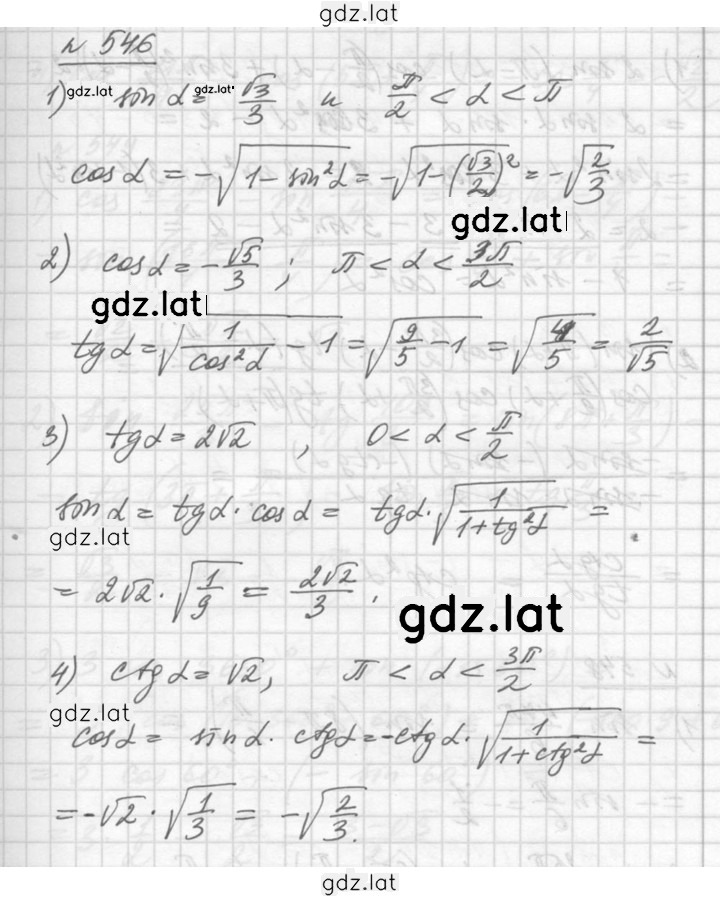 gdz.lat
n 546
1) gdz.lat sin α = gdz.lat √3/3 и π/2 < α < π
cos α = -√(1 - sin²α) = -√(1 - (√3/2)²) = -√(2/3)
gdz.lat
2) cos α = -√5/3 ; π < α < 3π/2
gdz.lat
tg α = √(1/cos²α - 1) = √(9/5 - 1) = √(4/5) = 2/√5
3) tg α = 2√2 , 0 < α < π/2
sin α = tg α · cos α = tg α · √(1/(1+tg²α)) =
gdz.lat
= 2√2 · √(1/9) = 2√2/3 .
gdz.lat
4) ctg α = √2, π < α < 3π/2
gdz.lat
cos α = sin α · ctg α = -ctg α · √(1/(1+ctg²α)) =
= -√2 · √(1/3) = -√(2/3).
gdz.lat